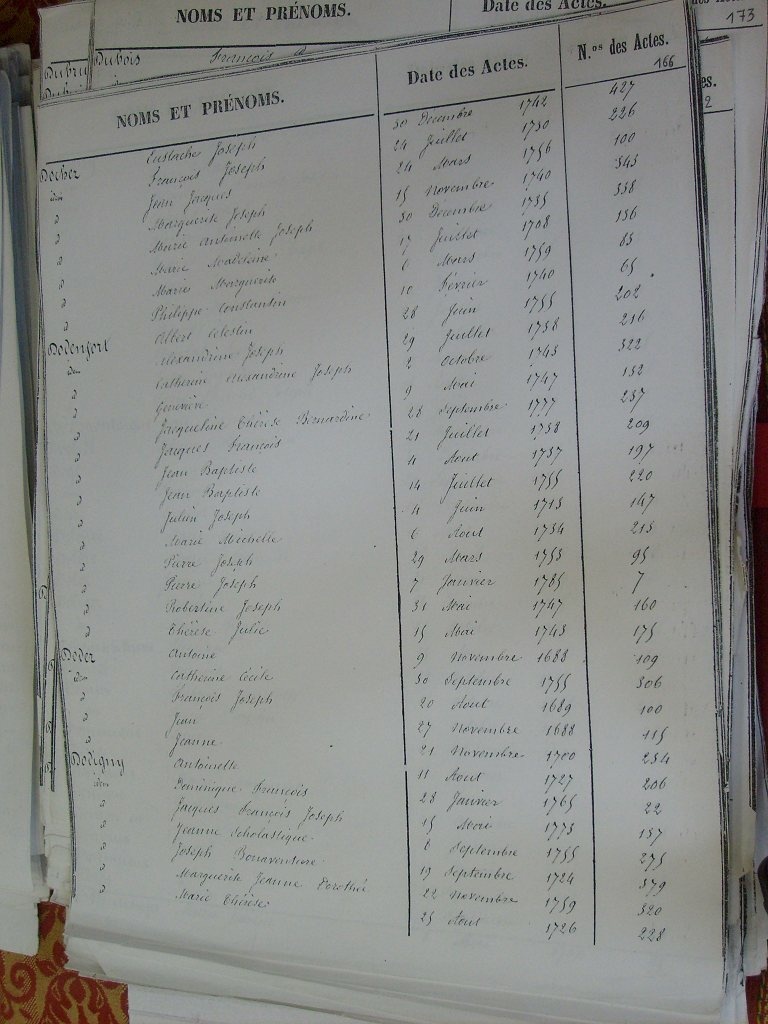 NOMS ET PRÉNOMS. Date des Actes. 173
Dubois François
NOMS ET PRÉNOMS. Date des Actes. N.os des Actes. 166
Docher Eustache Joseph 30 Decembre 1742 427
idem François Joseph 24 Juillet 1750 226
d Jean Jacques 24 Mars 1756 100
d Marguerite Joseph 15 Novembre 1740 343
d Marie Antoinette Joseph 30 Decembre 1735 338
d Marie Madeleine 17 Juillet 1708 156
d Marie Marguerite 6 Mars 1759 83
d Philippe Constantin 10 Février 1740 65
Dodenfort Albert Celestin 28 Juin 1755 202
idem Alexandrine Joseph 29 Juillet 1738 216
d Catherine Alexandrine Joseph 2 Octobre 1743 322
d Geneviève 9 Mai 1747 132
d Jacqueline Thérèse Bernardine 28 Septembre 1777 237
d Jacques François 21 Juillet 1738 209
d Jean Baptiste 4 Aout 1737 197
d Jean Baptiste 14 Juillet 1755 220
d Julien Joseph 4 Juin 1713 147
d Marie Michelle 6 Aout 1734 213
d Pierre Joseph 29 Mars 1753 95
d Pierre Joseph 7 Janvier 1785 7
d Robertine Joseph 31 Mai 1747 160
d Thérèse Julie 15 Mai 1743 175
Doder Antoine 9 Novembre 1688 109
idem Catherine Cecile 30 Septembre 1755 306
d François Joseph 20 Aout 1689 100
d Jean 27 Novembre 1688 115
d Jeanne 21 Novembre 1700 254
Dodigny Antoinette 11 Aout 1727 206
idem Dominique François 28 Janvier 1765 22
d Jacques François Joseph 15 Mai 1773 137
d Jeanne Scholastique 8 Septembre 1755 275
d Joseph Bonaventure 19 Septembre 1724 379
d Marguerite Jeanne Dorothée 22 Novembre 1759 320
d Marie Thérèse 25 Aout 1726 228